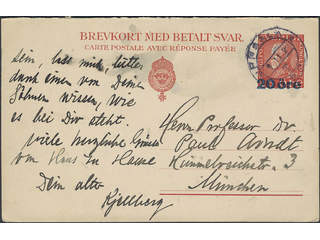 BREVKORT MED BETALT SVAR.
CARTE POSTALE AVEC RÉPONSE PAYÉE
20 öre
sein, laß mich, bitte
durch einen von Deinen
Söhnen wissen, wie
es bei Dir steht.
Viele herzliche Grüsse
von Haus zu Hause
Dein alter
Kjellberg
Herrn Professor Dr.
Paul Arndt
3
München